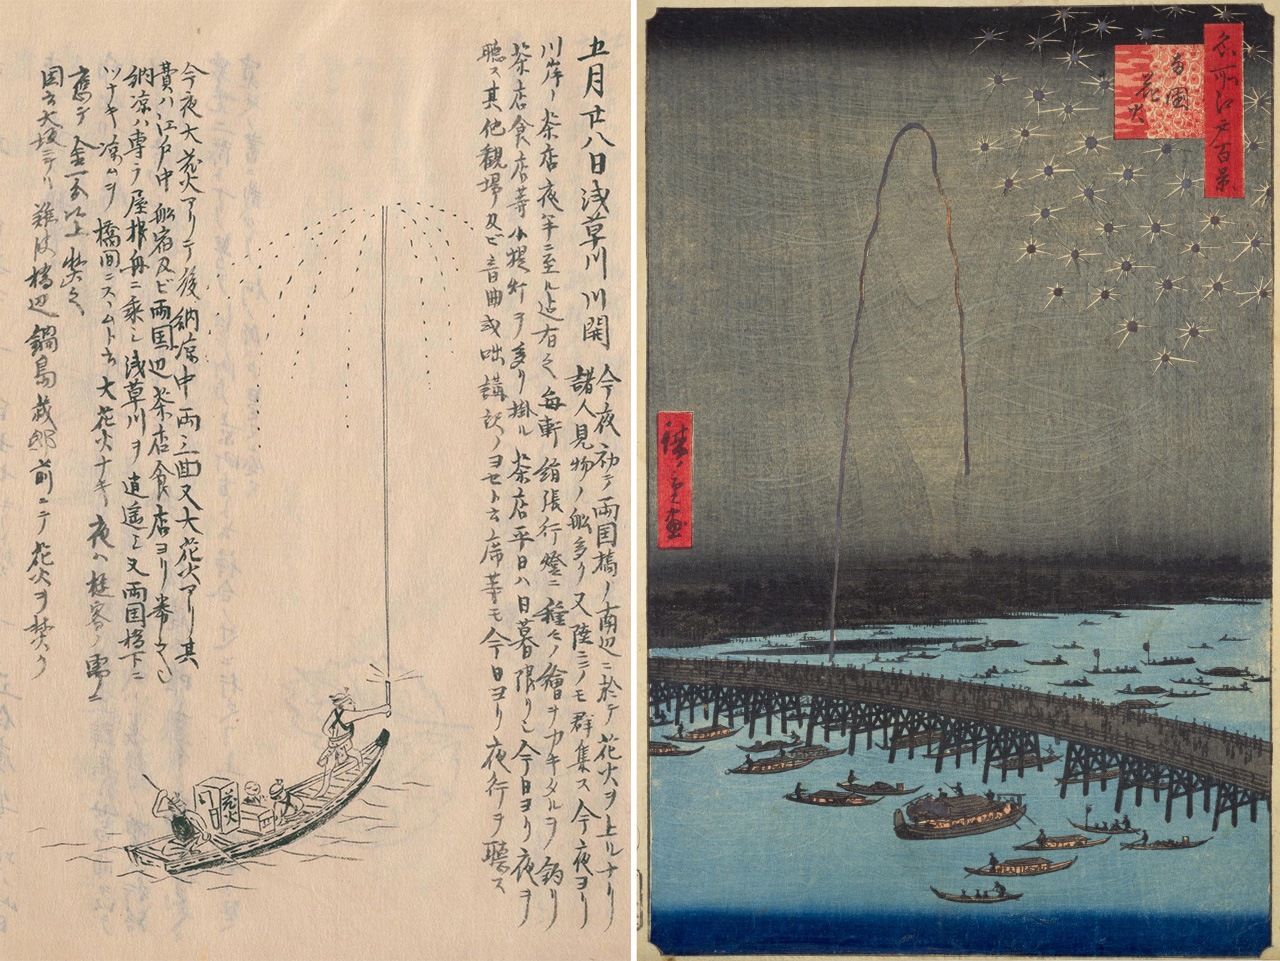 五月廿八日浅草川川開
今夜初テ両国橋ノ南辺ニ於テ花火ヲ上ルナリ
諸人見物ノ船多ク又陸ニテモ群集ス今夜ヨリ
川岸ノ茶店夜半ニ至ル迄有之毎軒絹張行燈ニ種々ノ繪ヲカキタルヲ釣リ
茶店食店等小提灯ヲ多ク掛ル茶店平日ハ日暮限リ也今日ヨリ夜ヲ
聴ス其他観場及ビ音曲或咄講釈ノヨセト云席等モ今日ヨリ夜行ヲ聴ス
今夜大花火アリテ後納凉中両三回又大花火アリ其
費ハ江戸中船宿及ビ両国辺茶店食店ヨリ募之也
納凉ハ専ラ屋根舟ニ乗シ浅草川ヲ逍遥シ又両国橋下ニ
ツナキ凉ムヲ橋間ニスヽムト云大花火ナキ夜ハ遊客ノ需ニ
應テ金一両以上焚之
因云大坂ニテハ難波橋辺鍋島蔵邸前ニテ花火ヲ焚ク
花火
名所江戸百景
両国花火
廣重画